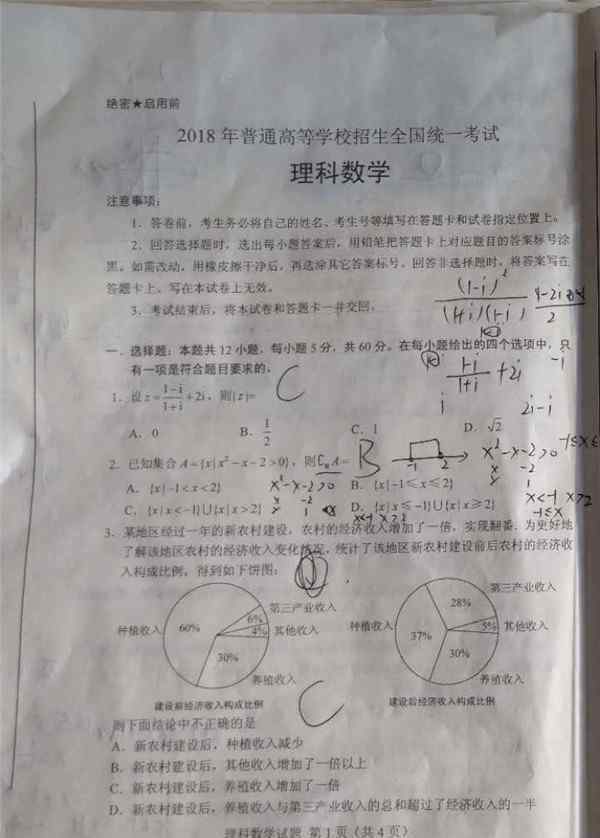 绝密★启用前
2018 年普通高等学校招生全国统一考试
理科数学
注意事项：
1．答卷前，考生务必将自己的姓名、考生号等填写在答题卡和试卷指定位置上。
2．回答选择题时，选出每小题答案后，用铅笔把答题卡上对应题目的答案标号涂
黑。如需改动，用橡皮擦干净后，再选涂其它答案标号。回答非选择题时，将答案写在
答题卡上。写在本试卷上无效。
3．考试结束后，将本试卷和答题卡一并交回。
(1-i)²
(1+i)(1-i)
2
一、选择题：本题共 12 小题，每小题 5 分，共 60 分。在每小题给出的四个选项中，只
有一项是符合题目要求的。
1-i/1+i +2i
-i
i
2i-i
1．设 z=(1-i)/(1+i)+2i，则|z|=
C
A．0 B．1/2 C．1 D．√2
2．已知集合 A={x|x²-x-2>0}，则∁RA=
B
-1 2
x²-x-2>0
-1≤x≤
x -2
x 1
A．{x|-1<x<2} B．{x|-1≤x≤2}
x²-x-2>0
x -2
x 1
x<-1 x>2
-1≤x
C．{x|x<-1}∪{x|x>2} D．{x|x≤-1}∪{x|x≥2}
x<-1 x>2
3．某地区经过一年的新农村建设，农村的经济收入增加了一倍，实现翻番．为更好地
了解该地区农村的经济收入变化情况，统计了该地区新农村建设前后农村的经济收
入构成比例，得到如下饼图：
第三产业收入
6%
种植收入 60% 4% 其他收入
30%
养殖收入
建设前经济收入构成比例
第三产业收入
28%
种植收入 37% 5% 其他收入
30%
养殖收入
建设后经济收入构成比例
C
则下面结论中不正确的是
A．新农村建设后，种植收入减少
B．新农村建设后，其他收入增加了一倍以上
C．新农村建设后，养殖收入增加了一倍
D．新农村建设后，养殖收入与第三产业收入的总和超过了经济收入的一半
理科数学试题 第 1 页（共 4 页）